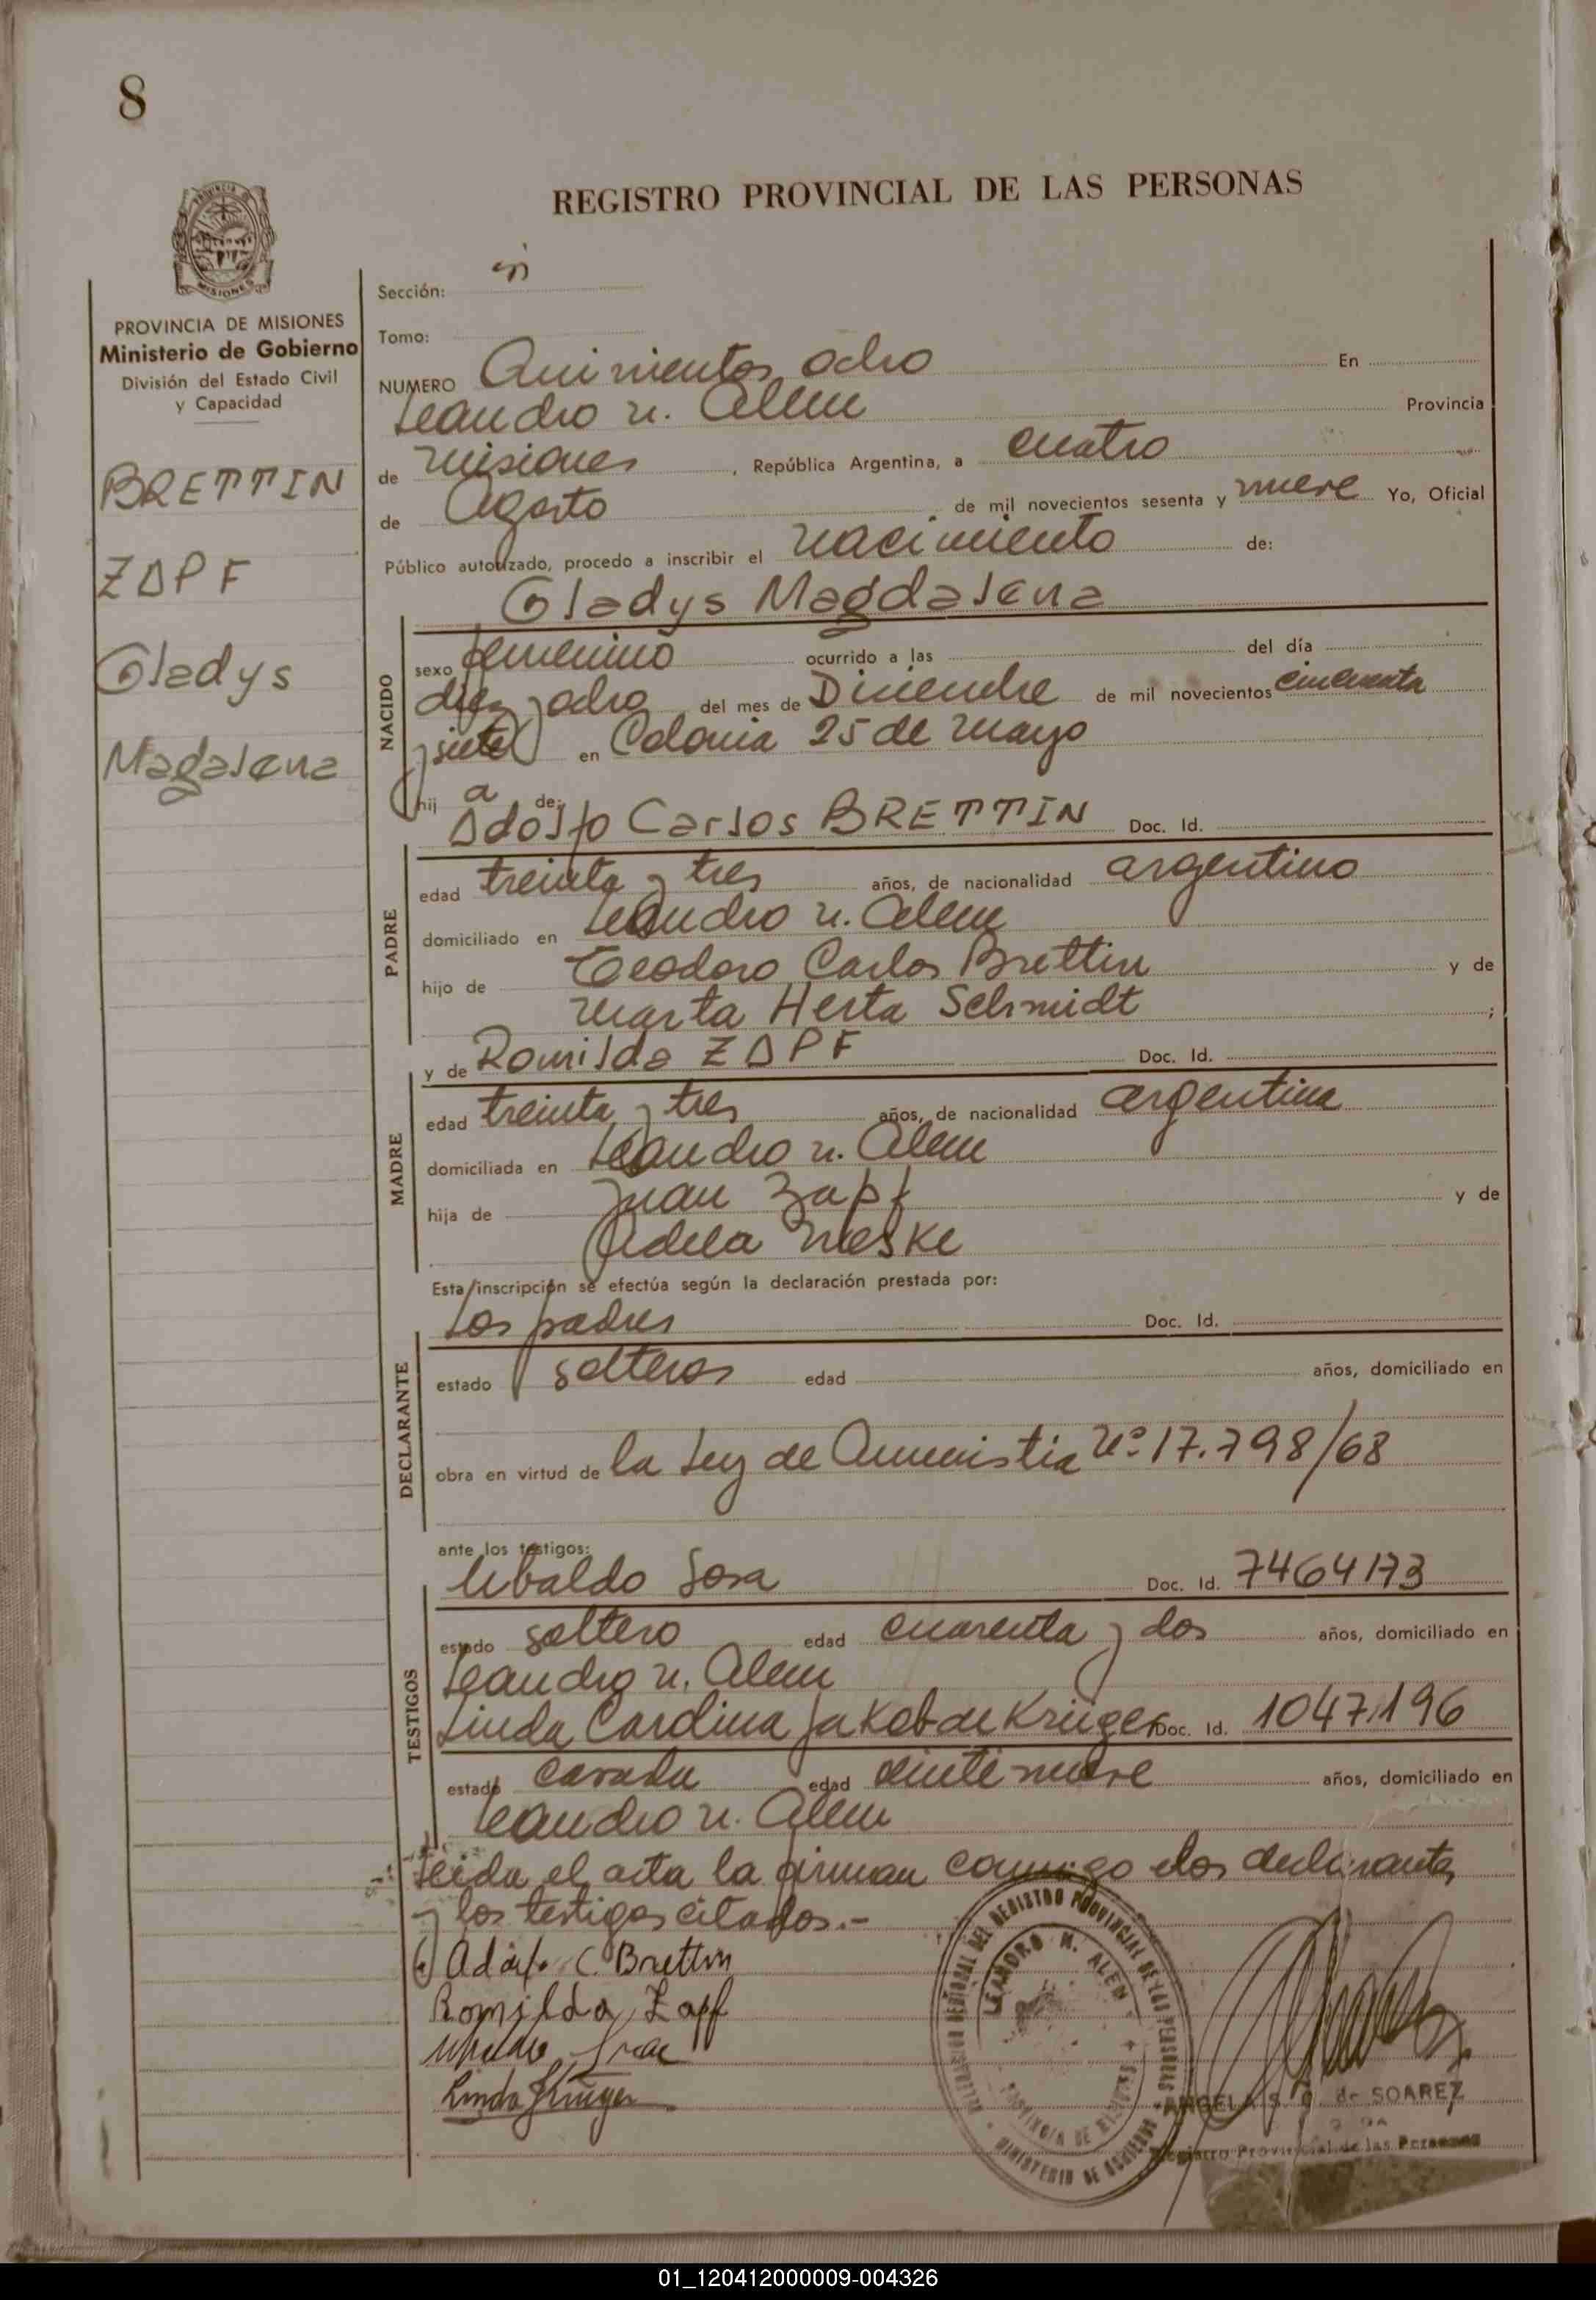 8
REGISTRO PROVINCIAL DE LAS PERSONAS
PROVINCIA DE MISIONES
Ministerio de Gobierno
División del Estado Civil
y Capacidad
BRETTIN
ZAPF
Gladys
Magdalena
Sección:
Tomo:
NUMERO Quinientos ocho En
Leandro N. Alem Provincia
de Misiones, República Argentina, a cuatro
de Agosto de mil novecientos sesenta y nueve Yo, Oficial
Público autorizado, procedo a inscribir el nacimiento de:
Gladys Magdalena
NACIDO
sexo femenino ocurrido a las del día
diez y ocho del mes de Diciembre de mil novecientos cincuenta
y siete en Colonia 25 de Mayo
hij a de:
Adolfo Carlos BRETTIN Doc. Id.
PADRE
edad treinta y tres años, de nacionalidad argentino
domiciliado en Leandro N. Alem
hijo de Teodoro Carlos Brettin y de
Marta Herta Schmidt ;
y de Romilda ZAPF Doc. Id.
MADRE
edad treinta y tres años, de nacionalidad argentina
domiciliada en Leandro N. Alem
hija de Juan Zapf y de
Adela Meske
Esta inscripción se efectúa según la declaración prestada por:
Los padres Doc. Id.
DECLARANTE
estado solteros edad años, domiciliado en
obra en virtud de la Ley de Amnistia Nº 17.798/68
ante los testigos:
Ubaldo Sosa Doc. Id. 7464173
TESTIGOS
estado soltero edad cuarenta y dos años, domiciliado en
Leandro N. Alem
Linda Carolina Jakob de Krüger Doc. Id. 1047.196
estado casada edad veintinueve años, domiciliado en
Leandro N. Alem
Leida el acta la firman conmigo los declarantes
y los testigos citados.-
Adolfo C. Brettin
Romilda Zapf
Linda Krüger
REGISTRO PROVINCIAL DE LAS PERSONAS
LEANDRO N. ALEM
PROVINCIA DE MISIONES
MINISTERIO DE GOBIERNO
ANGELA S. de SOAREZ
Registro Provincial de las Personas
01_120412000009-004326